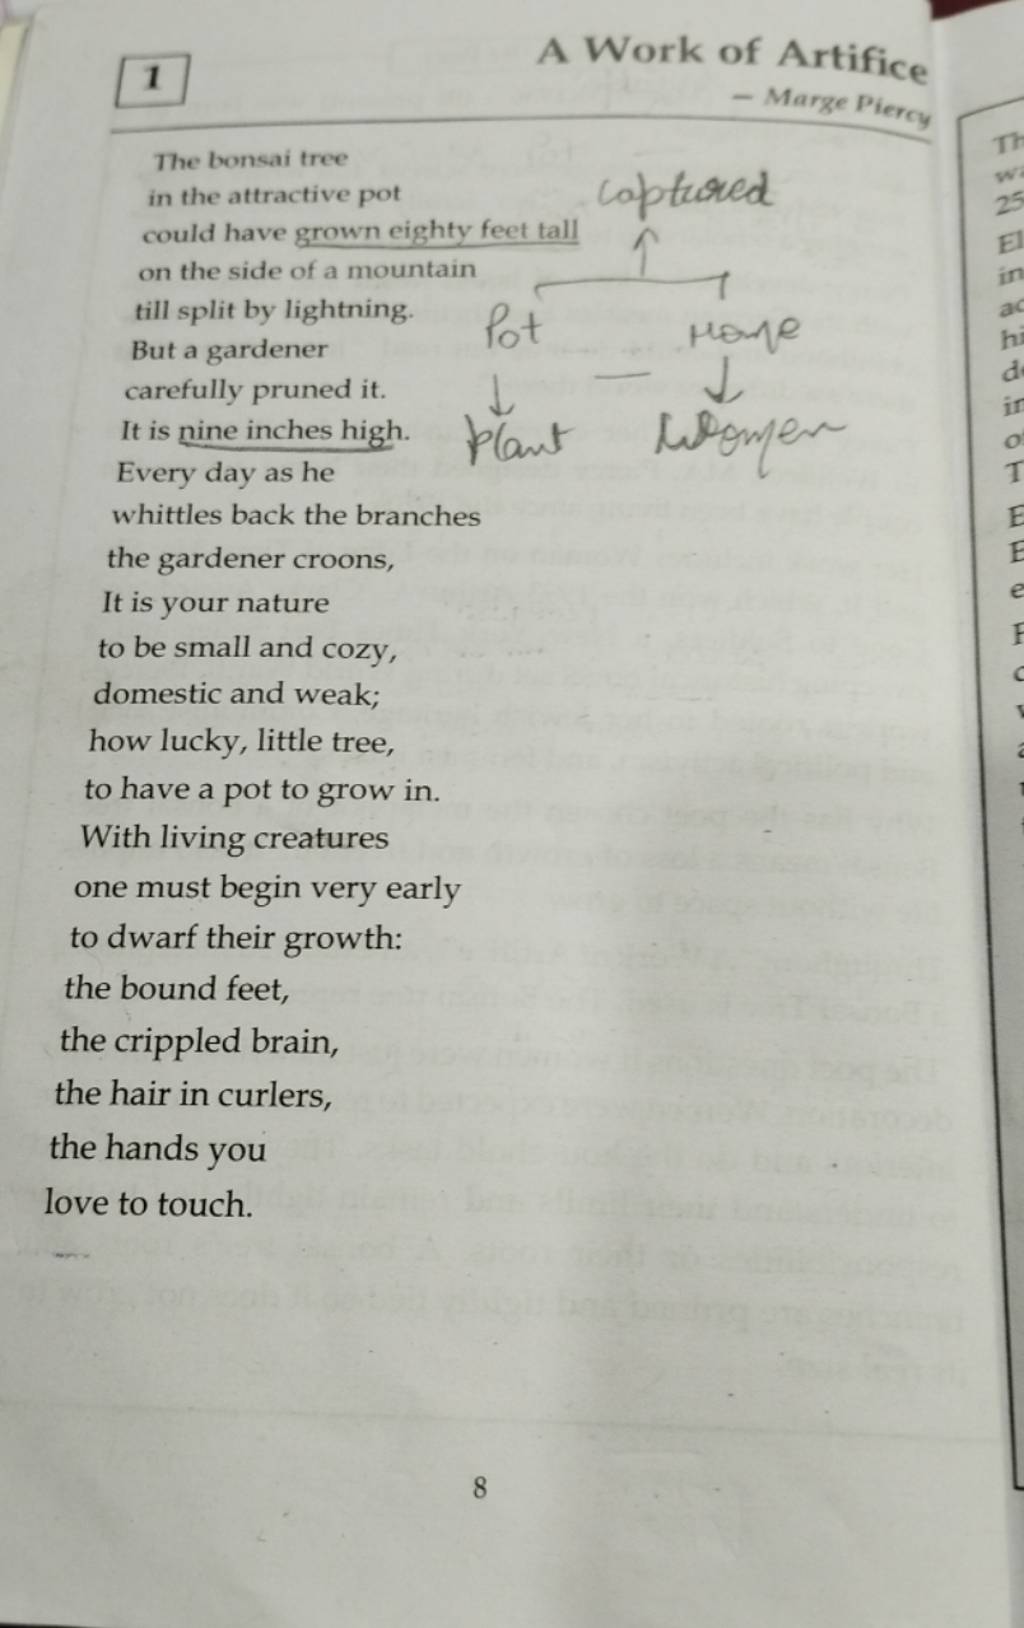 1
A Work of Artifice
— Marge Piercy
The bonsai tree
in the attractive pot
could have grown eighty feet tall
on the side of a mountain
till split by lightning.
But a gardener
carefully pruned it.
It is nine inches high.
Every day as he
whittles back the branches
the gardener croons,
It is your nature
to be small and cozy,
domestic and weak;
how lucky, little tree,
to have a pot to grow in.
With living creatures
one must begin very early
to dwarf their growth:
the bound feet,
the crippled brain,
the hair in curlers,
the hands you
love to touch.
captured
Pot Home
Plant — Women
8
Th
25
El
in
hi
T
E
E
e